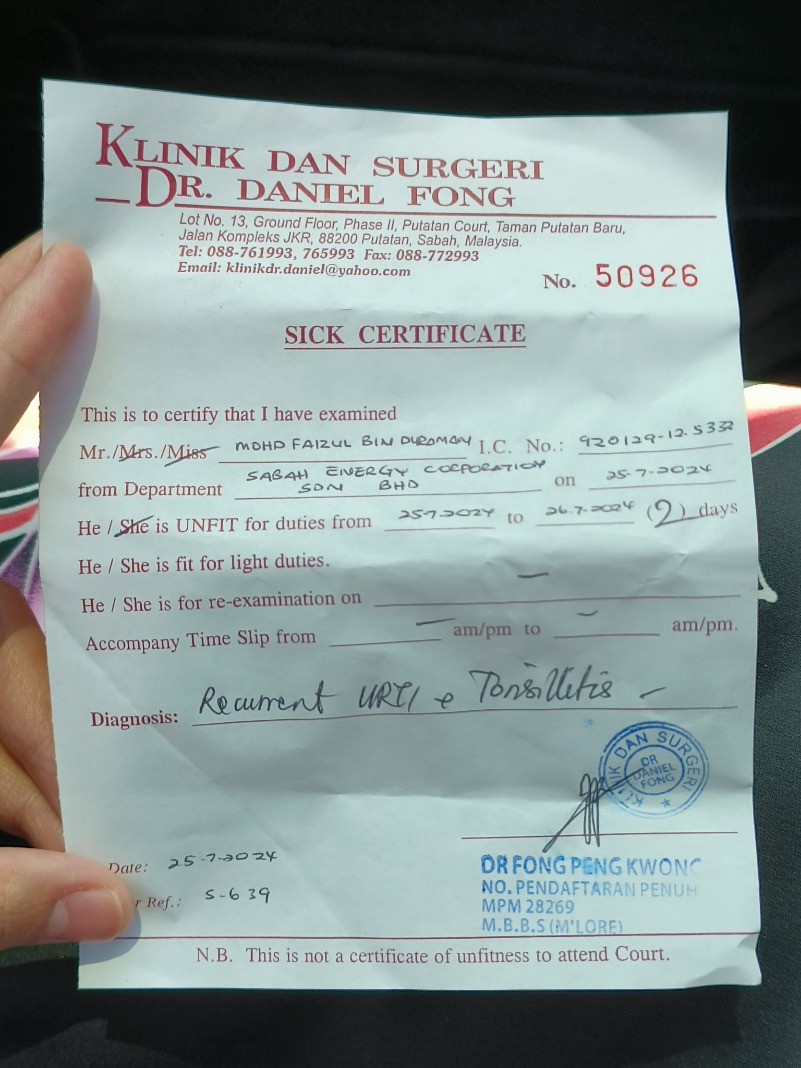 KLINIK DAN SURGERI
DR. DANIEL FONG
Lot No. 13, Ground Floor, Phase II, Putatan Court, Taman Putatan Baru,
Jalan Kompleks JKR, 88200 Putatan, Sabah, Malaysia.
Tel: 088-761993, 765993 Fax: 088-772993
Email: klinikdr.daniel@yahoo.com
No. 50926
SICK CERTIFICATE
This is to certify that I have examined
Mr./Mrs./Miss MOHD FAIZUL BIN I.C. No.: 920129-12-5332
from Department SABAH ENERGY CORPORATION SDN BHD on 25-7-2024
He / She is UNFIT for duties from 25.7.2024 to 26.7.2024 (2) days
He / She is fit for light duties.
He / She is for re-examination on —
Accompany Time Slip from — am/pm to — am/pm.
Diagnosis: Recurrent URTI Tonsillitis —
KLINIK DAN SURGERI
DR
DANIEL
FONG
DR FONG PENG KWONG
NO. PENDAFTARAN PENUH
MPM 28269
M.B.B.S (M'LORE)
Date: 25-7-2024
r Ref.: S-639
N.B. This is not a certificate of unfitness to attend Court.